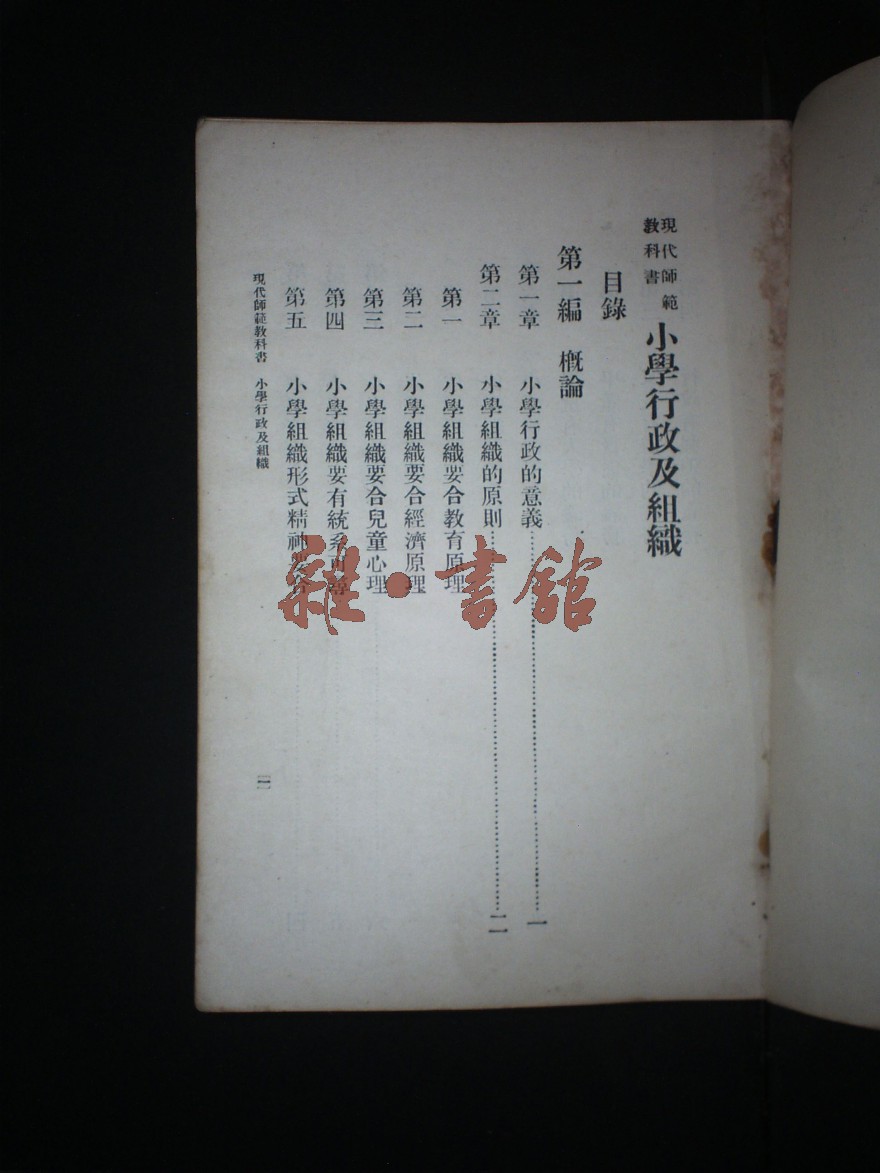 現代師範
教科書
小學行政及組織
目錄
第一編 概論
第一章 小學行政的意義……一
第二章 小學組織的原則……二
第一 小學組織要合教育原理
第二 小學組織要合經濟原理
第三 小學組織要合兒童心理
第四 小學組織要有統系可尋
第五 小學組織形式精神要合
現代師範教科書 小學行政及組織
雜·書館